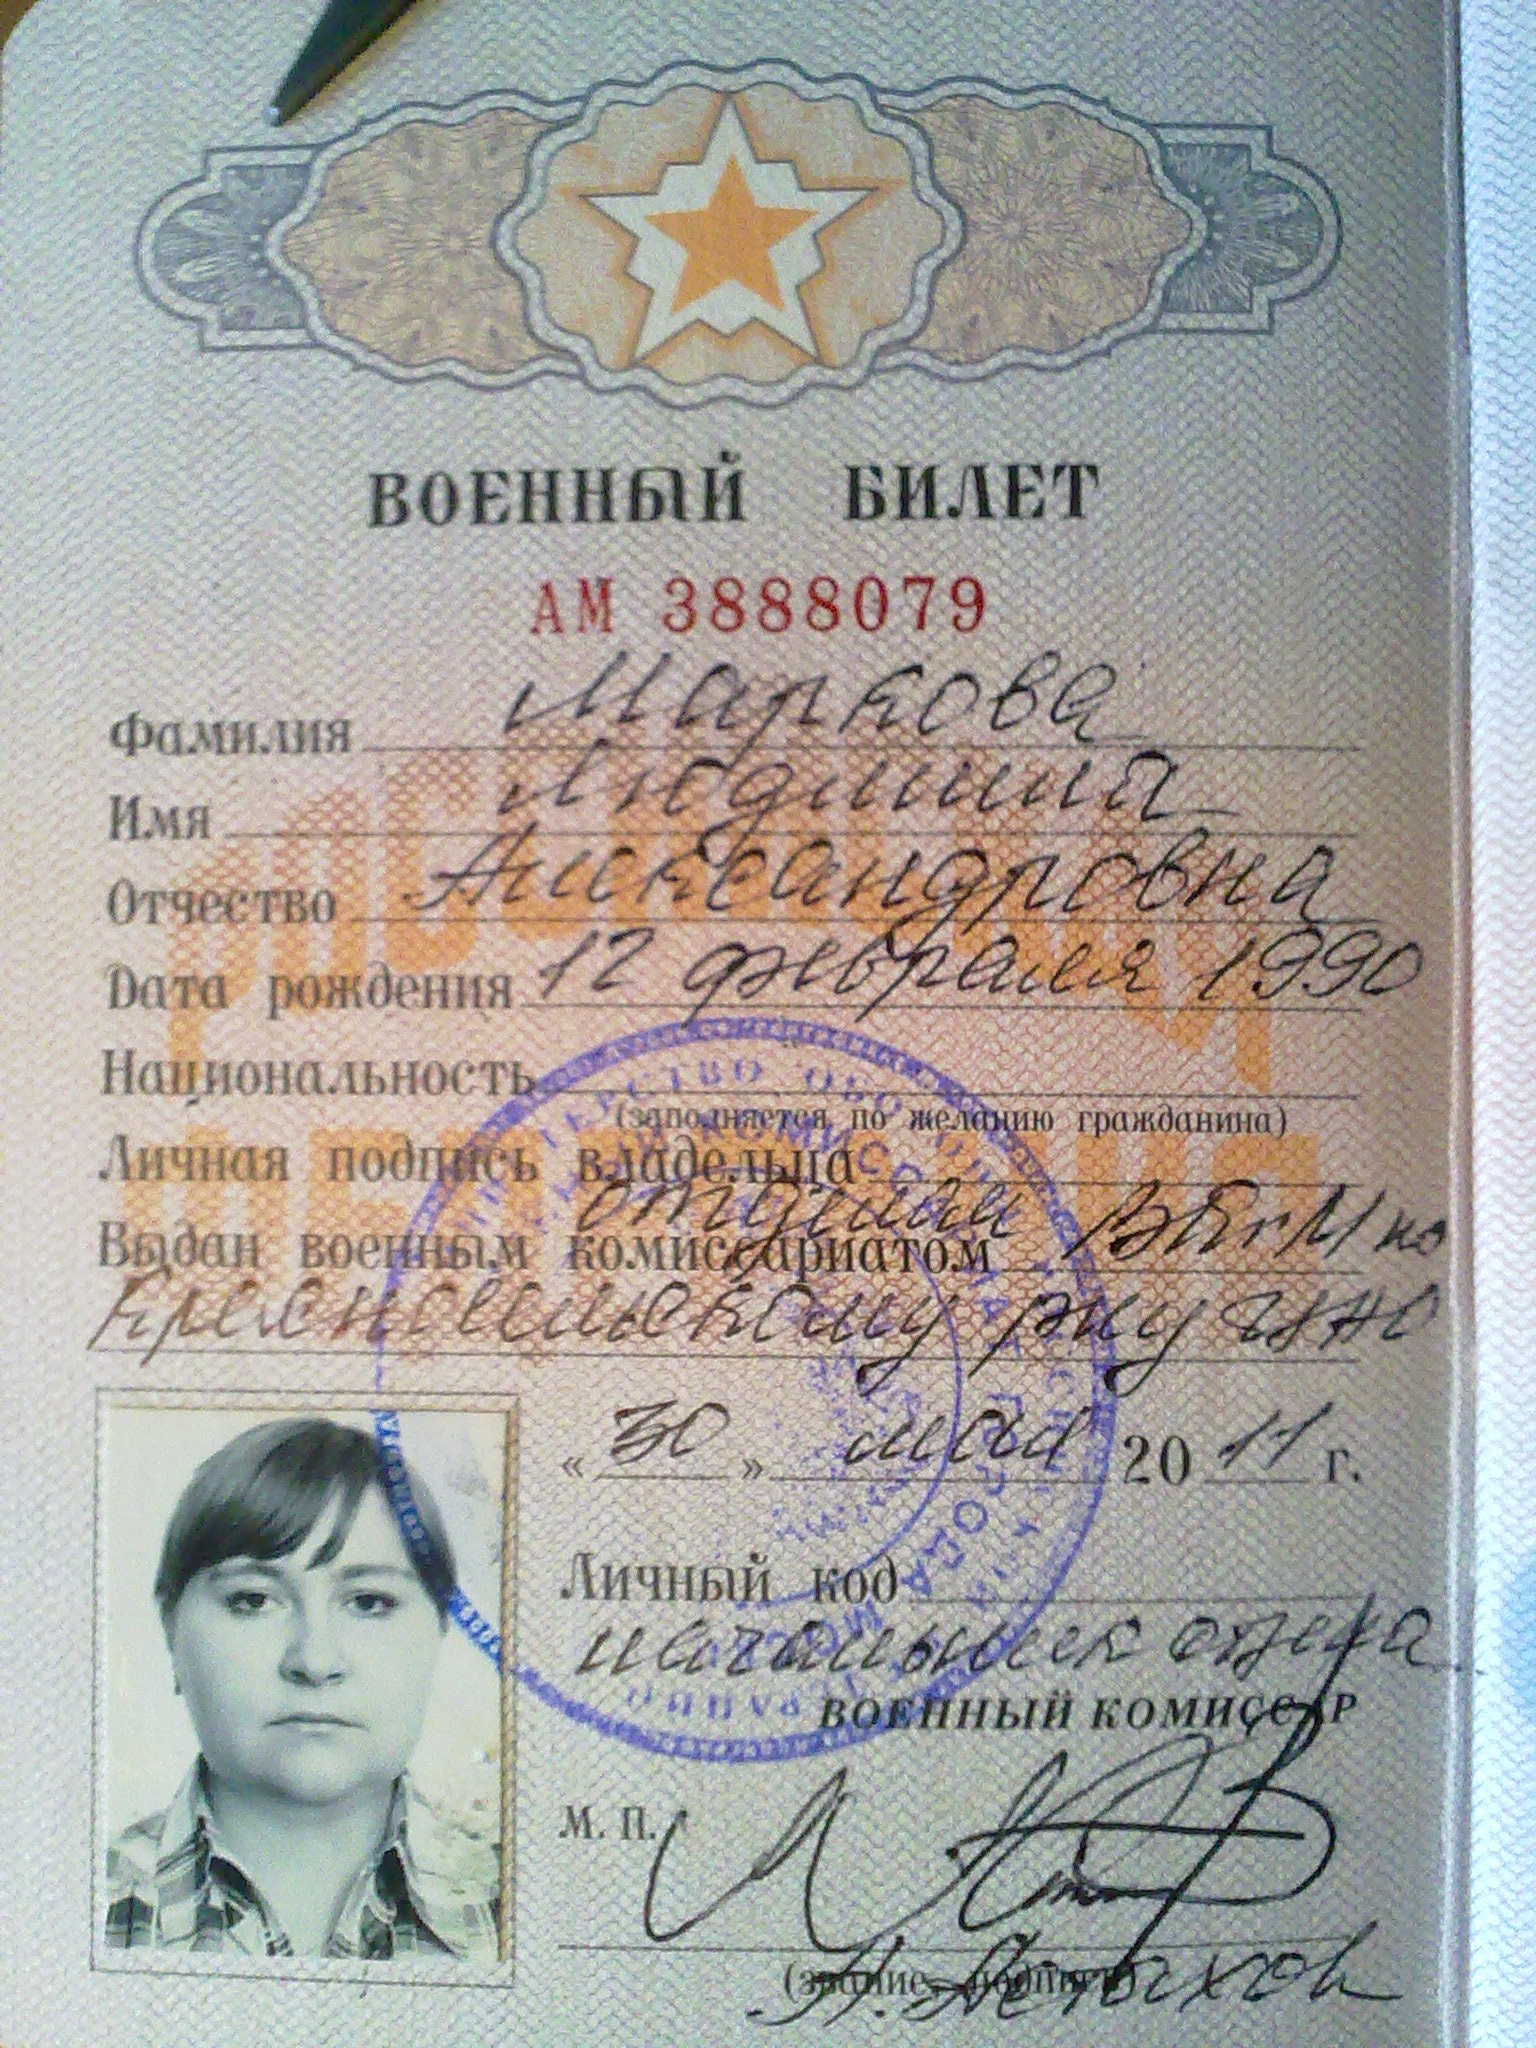 ВОЕННЫЙ БИЛЕТ
АМ 3888079
Фамилия Маркова
Имя Людмила
Отчество Александровна
Дата рождения 12 февраля 1990
Национальность
(заполняется по желанию гражданина)
Личная подпись владельца
Выдан военным комиссариатом отделом ВБГМ по
Красносельскому р-ну
« 30 » мая 20 11 г.
Личный код
начальник отдела
ВОЕННЫЙ КОМИССАР
М. П.
(звание, подпись)